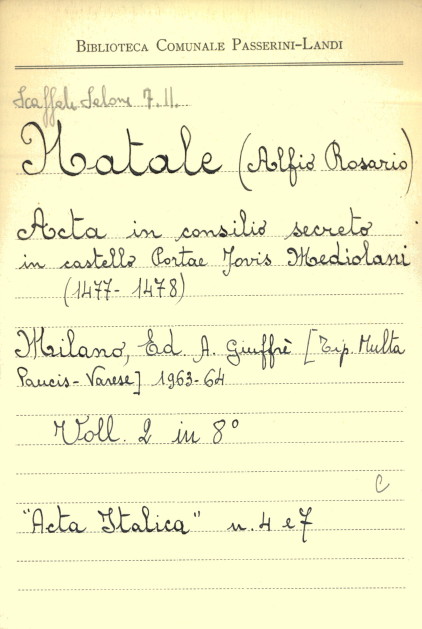 BIBLIOTECA COMUNALE PASSERINI-LANDI
Scaffale Salone 7.11.
Natale (Alfio Rosario)
Acta in consilio secreto
in castello Portae Jovis Mediolani
(1477-1478)
Milano, Ed. A. Giuffrè [Tip. Multa
Paucis-Varese] 1963-64
Voll. 2 in 8°
C
"Acta Italica" n. 4 e 7